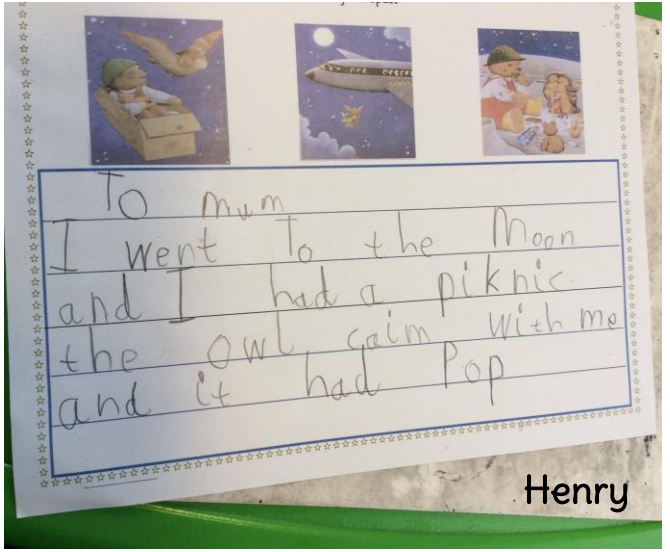 To mum
I went To the Moon
and I had a piknic.
the owl caim with me
and it had Pop
Henry